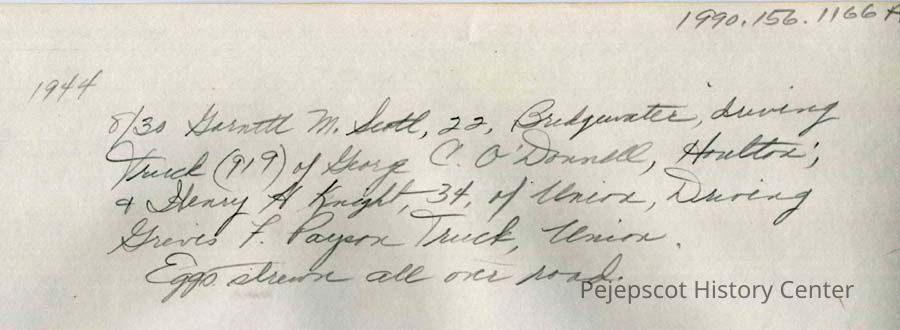 1990.156.1166 A
1944
8/30 Garnett M. Scott, 22, Bridgewater, driving
Truck (919) of George C. O'Donnell, Houlton,
& Henry H Knight, 34, of Union, Driving
Grevis F. Payson Truck, Union.
Eggs strewn all over road.
Pejepscot History Center